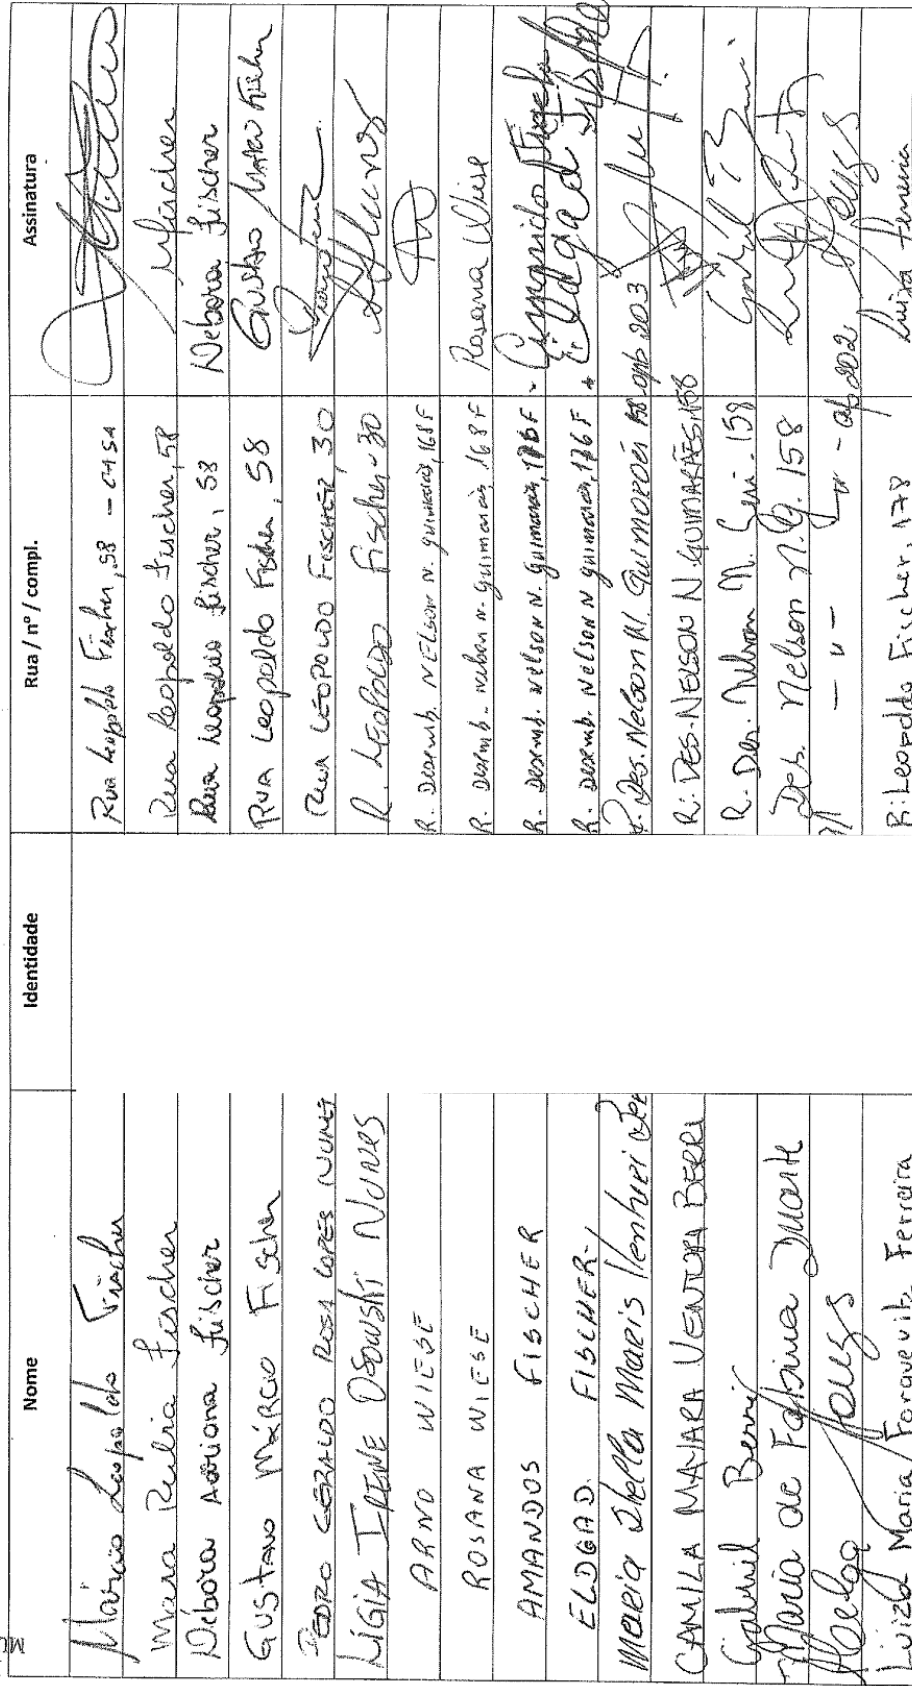 Nome Identidade Rua / nº / compl. Assinatura
Márcio Leopoldo Fischer Rua Leopoldo Fischer, 58
Mara Rubia Fischer Rua Leopoldo Fischer, 58 Mfischer
Débora Adriana Fischer Rua Leopoldo Fischer, 58 Débora Fischer
GUSTAVO MÁRCIO Fischer RUA Leopoldo Fischer, 58 Gustavo Márcio Fischer
PEDRO GERALDO ROSA LOPES NUNES RUA LEOPOLDO FISCHER, 30
LÍGIA IRENE OSOWSKI NUNES R. LEOPOLDO Fischer - 30
ARNO WIESE R. Desemb. NELSON N. guimarães, 168F
ROSANA WIESE R. Desemb. nelson N. guimarães, 168F Rosana Wiese
AMANDOS FISCHER R. Desemb. Nelson N. Guimarães, 176F
ELDGAD. FISCHER. R. Desemb. Nelson N guimarães, 176F
Maria Stella Maris R. Des. Nelson N. Guimarães 158 apto 203
CAMILA MAIARA VENTURA BERRI R: DES. NELSON N. GUIMARÃES, 158
Gabriel Berri R. Des. Nelson N. Gui. 158
Maria de Fatima Duarte Des. Nelson N. G. 158
Helga - " - - ap 202
Luiza Maria Ferreira R: Leopoldo Fischer, 178 Luiza Ferreira